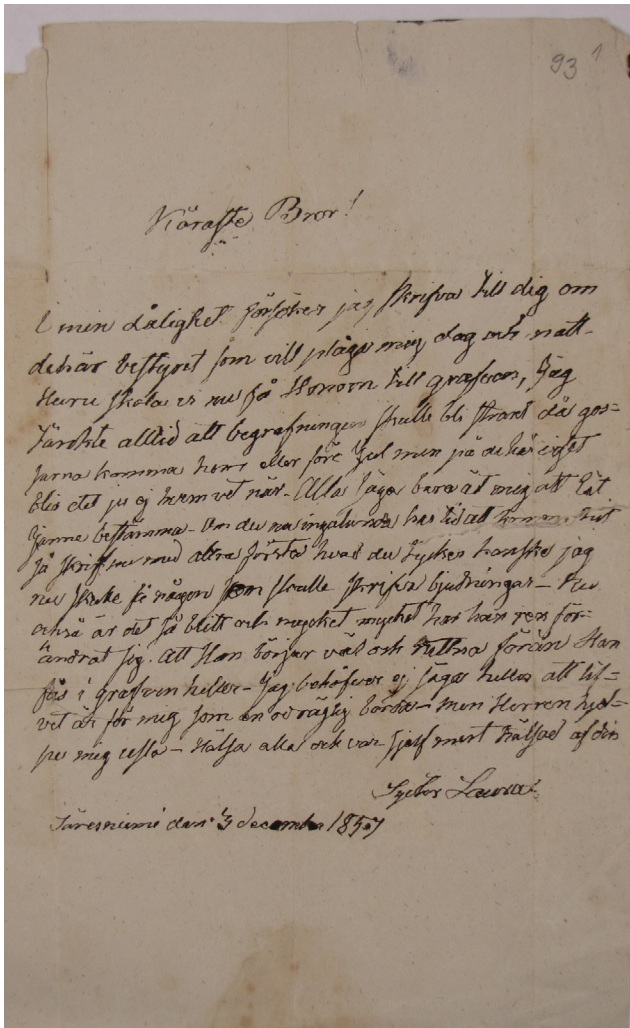 93 1
Käraste Bror!
I min dålighet försöker jag skrifva till dig om
dehär bestyret som vill plåga mig dag och natt-
Huru skola vi nu få Honom till grafven, Jag
tänckte alltid att begrafningen skulle bli strant då gos=
sarna komma hem eller före Jul men på dehär viset
blir det ju ej hem vet när- Alla säga bara åt mig att låt
Janne bestämma- Om du nu ingalunda har tid att komma hit
så skrif nu med allra första hvad du tycker kanske jag
nu skulle få någon som skulle skrifva bjudningar- Nu
också är det så blitt och mycket mycket har han ren för=
ändrat sig. Att Han börjar väl och ruttna förän Han
fås i grafven heller- Jag behöfver ej säga heller att lif=
vet är för mig som en odräglig börda- men Herren hjel=
pe mig usla- Hälsa alla och var sjelf mest hälsad af din
Syster Laura
den 3 december 1857